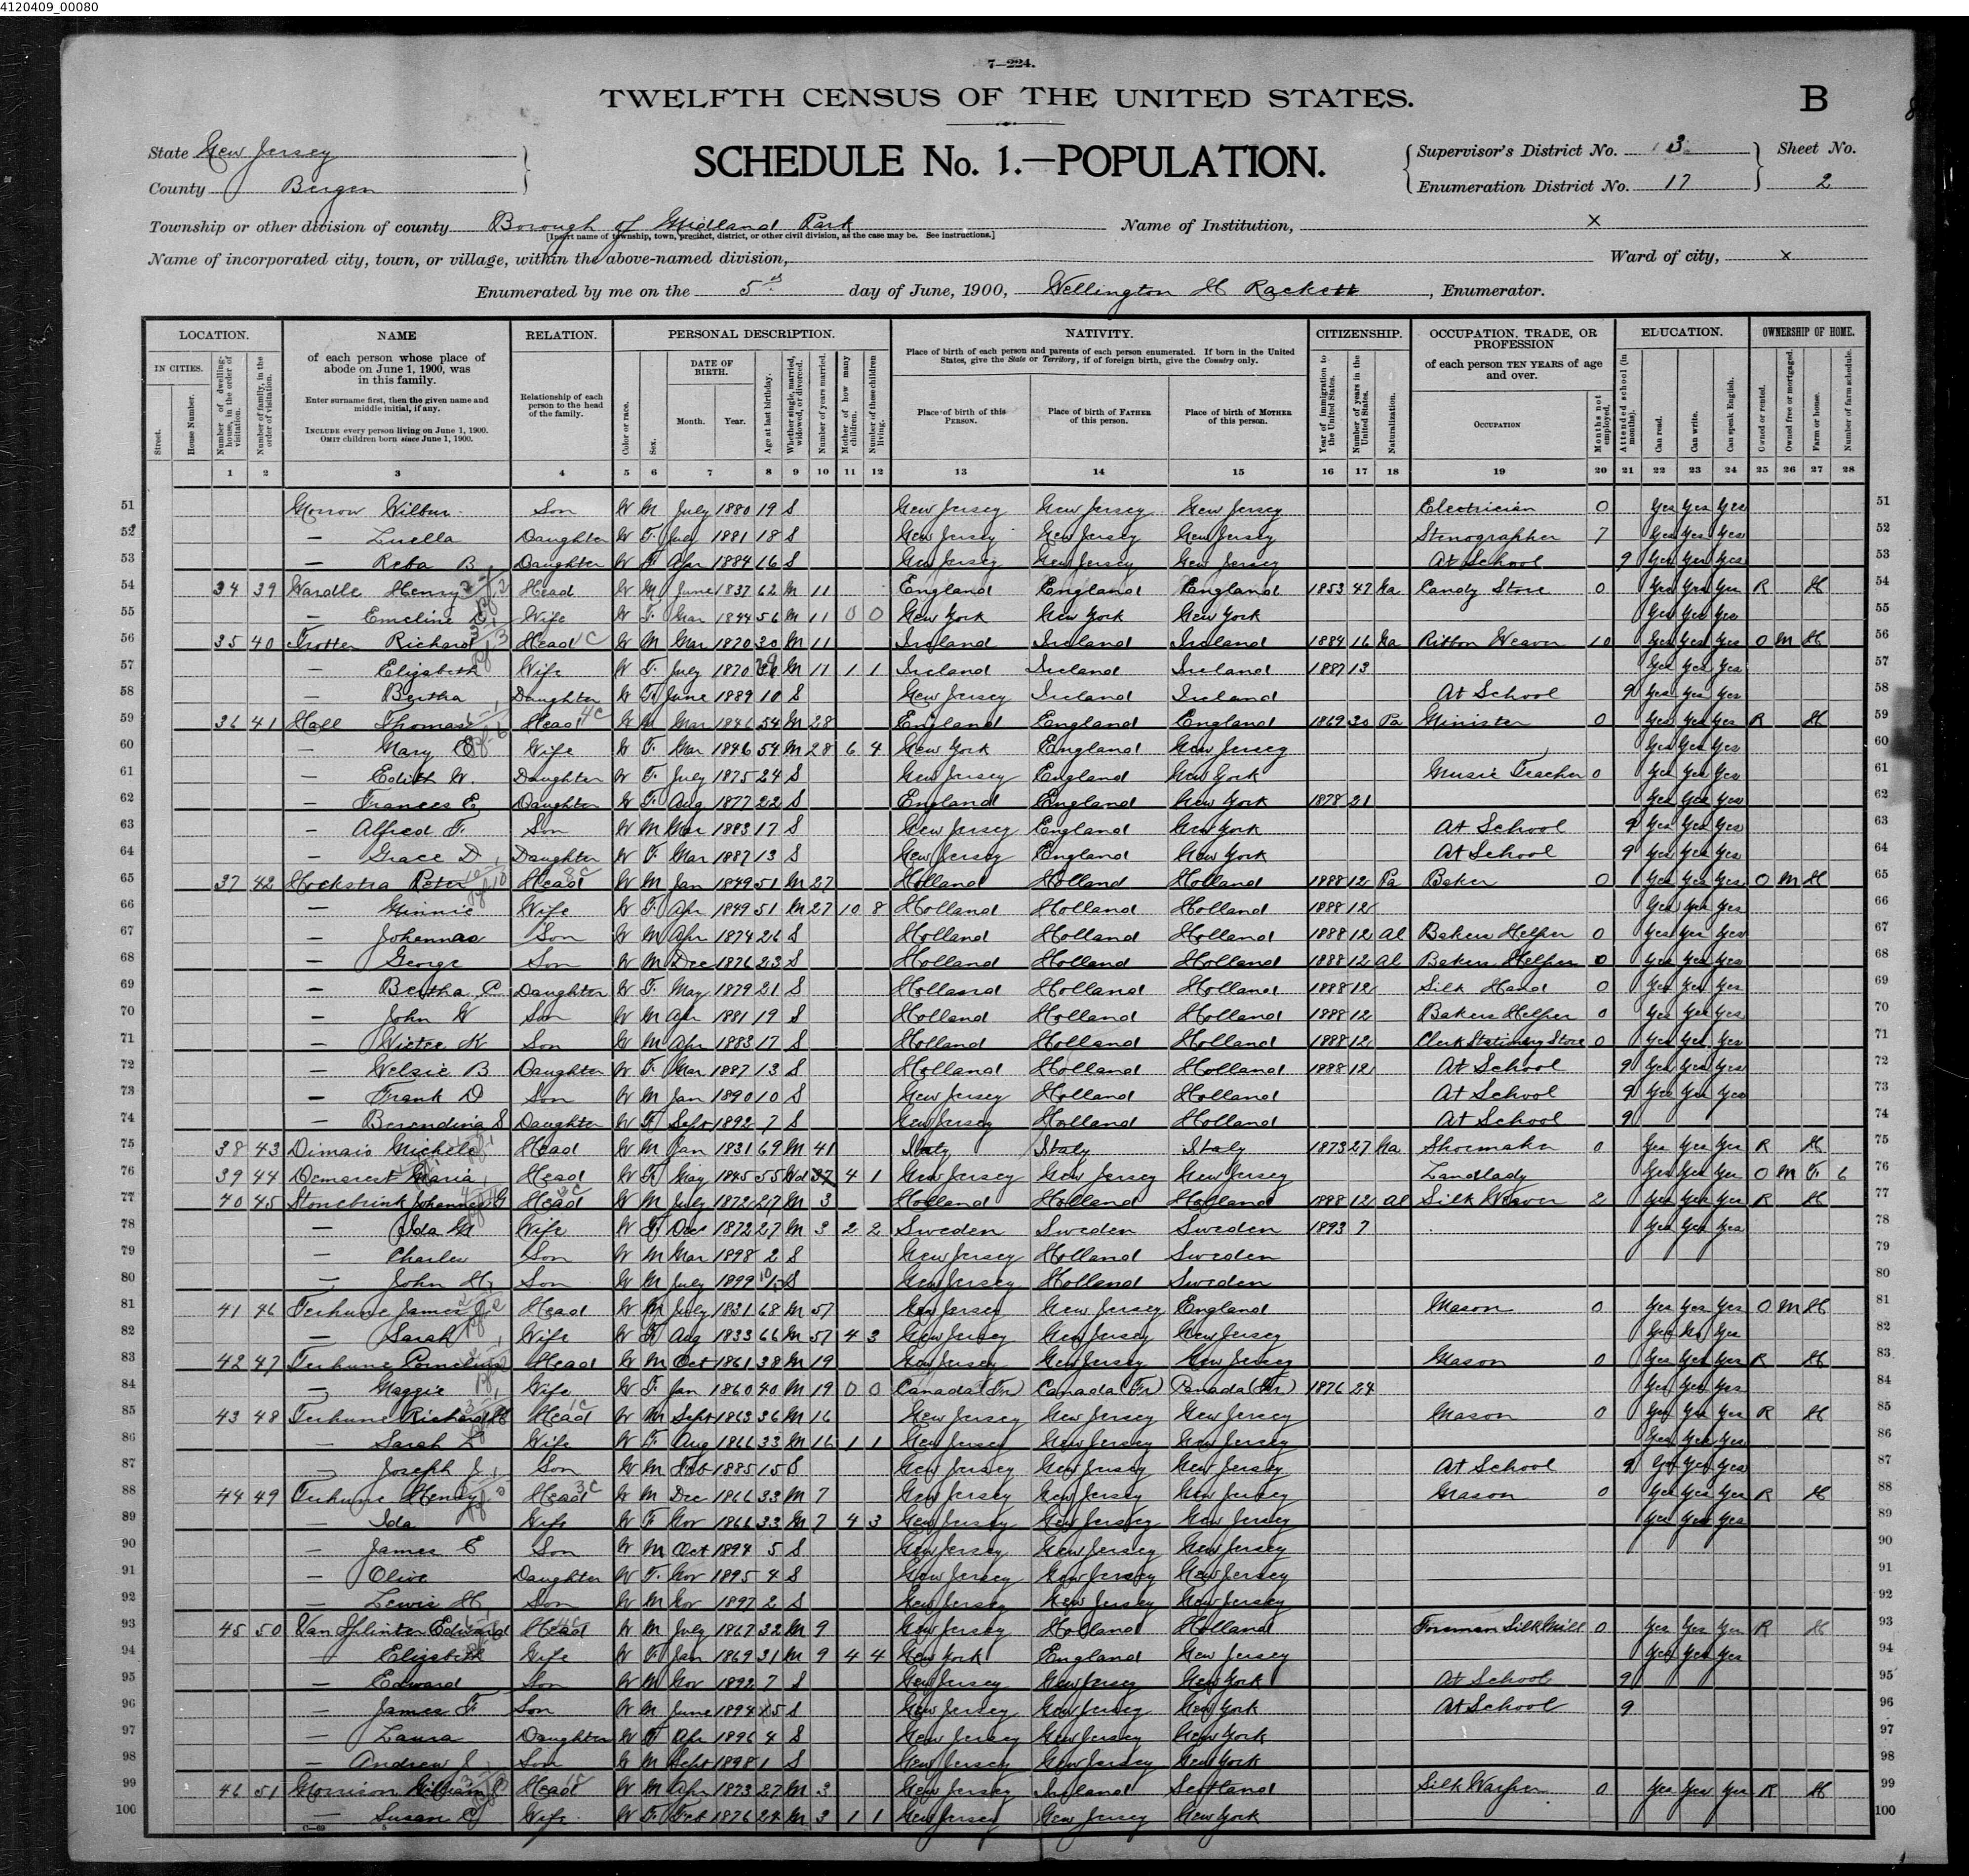 4120409_00080
7—224.
TWELFTH CENSUS OF THE UNITED STATES.
B
State New Jersey
County Bergen
SCHEDULE No. 1.—POPULATION.
Supervisor's District No. 3
Enumeration District No. 17
Sheet No.
2
Township or other division of county Borough of Midland Park
[Insert name of township, town, precinct, district, or other civil division, as the case may be. See instructions.]
Name of Institution, X
Name of incorporated city, town, or village, within the above-named division,
Ward of city, X
Enumerated by me on the 5th day of June, 1900, Wellington H Rackett, Enumerator.
LOCATION. NAME RELATION. PERSONAL DESCRIPTION. NATIVITY. CITIZENSHIP. OCCUPATION, TRADE, OR PROFESSION EDUCATION. OWNERSHIP OF HOME.
IN CITIES. Street. House Number. Number of dwelling-house, in the order of visitation. Number of family, in the order of visitation.
of each person whose place of abode on June 1, 1900, was in this family.
Enter surname first, then the given name and middle initial, if any.
INCLUDE every person living on June 1, 1900. OMIT children born since June 1, 1900.
Relationship of each person to the head of the family.
Color or race. Sex. DATE OF BIRTH. Month. Year. Age at last birthday. Whether single, married, widowed, or divorced. Number of years married. Mother of how many children. Number of these children living.
Place of birth of each person and parents of each person enumerated. If born in the United States, give the State or Territory; if of foreign birth, give the Country only.
Place of birth of this PERSON. Place of birth of FATHER of this person. Place of birth of MOTHER of this person.
Year of immigration to the United States. Number of years in the United States. Naturalization.
of each person TEN YEARS of age and over.
OCCUPATION Months not employed. Attended school (in months). Can read. Can write. Can speak English. Owned or rented. Owned free or mortgaged. Farm or house. Number of farm schedule.
1 2 3 4 5 6 7 8 9 10 11 12 13 14 15 16 17 18 19 20 21 22 23 24 25 26 27 28
51 Morrow Wilbur Son W M July 1880 19 S New Jersey New Jersey New Jersey Electrician 0 Yes Yes Yes 51
52 — Luella Daughter W F July 1881 18 S New Jersey New Jersey New Jersey Stenographer 7 Yes Yes Yes 52
53 — Reba B Daughter W F Apr 1884 16 S New Jersey New Jersey New Jersey At School 9 Yes Yes Yes 53
54 34 39 Wardle Henry Head W M June 1837 62 M 11 England England England 1853 47 Na Candy Store 0 Yes Yes Yes R H 54
55 — Emeline Wife W F Mar 1844 56 M 11 0 0 New York New York New York Yes Yes Yes 55
56 35 40 Trotter Richard Head W M Mar 1870 30 M 11 Ireland Ireland Ireland 1884 16 Na Ribbon Weaver 10 Yes Yes Yes O M H 56
57 — Elizabeth Wife W F July 1870 M 11 1 1 Ireland Ireland Ireland 1887 13 Yes Yes Yes 57
58 — Bertha Daughter W F June 1889 10 S New Jersey Ireland Ireland At School 9 Yes Yes Yes 58
59 36 41 Hall Thomas Head W M Mar 1846 54 M 28 England England England 1869 30 Pa Minister 0 Yes Yes Yes R H 59
60 — Mary E Wife W F Mar 1846 54 M 28 6 4 New York England New Jersey Yes Yes Yes 60
61 — Edith W. Daughter W F July 1875 24 S New Jersey England New York Music Teacher 0 Yes Yes Yes 61
62 — Frances E Daughter W F Aug 1877 22 S England England New York 1878 21 Yes Yes Yes 62
63 — Alfred F. Son W M Mar 1883 17 S New Jersey England New York At School 9 Yes Yes Yes 63
64 — Grace D Daughter W F Mar 1887 13 S New Jersey England New York At School 9 Yes Yes Yes 64
65 37 42 Hoekstra Peter Head W M Jan 1849 51 M 27 Holland Holland Holland 1888 12 Pa Baker 0 Yes Yes Yes O M H 65
66 — Minnie Wife W F Apr 1849 51 M 27 10 8 Holland Holland Holland 1888 12 Yes Yes Yes 66
67 — Johannas Son W M Apr 1874 26 S Holland Holland Holland 1888 12 Al Bakers Helper 0 Yes Yes Yes 67
68 — George Son W M Dec 1876 23 S Holland Holland Holland 1888 12 Al Bakers Helper 0 Yes Yes Yes 68
69 — Bertha C Daughter W F May 1879 21 S Holland Holland Holland 1888 12 Silk Hand 0 Yes Yes Yes 69
70 — John W Son W M Apr 1881 19 S Holland Holland Holland 1888 12 Bakers Helper 0 Yes Yes Yes 70
71 — K Son W M Apr 1883 17 S Holland Holland Holland 1888 12 Clerk Stationery Store 0 Yes Yes Yes 71
72 — Welsie B Daughter W F Mar 1887 13 S Holland Holland Holland 1888 12 At School 9 Yes Yes Yes 72
73 — Frank D Son W M Jan 1890 10 S New Jersey Holland Holland At School 9 Yes Yes Yes 73
74 — Berendina S Daughter W F Sept 1892 7 S New Jersey Holland Holland At School 9 74
75 38 43 Dimaio Michele Head W M Jan 1831 69 M 41 Italy Italy Italy 1873 27 Na Shoemaker 0 Yes Yes Yes R H 75
76 39 44 Demarest Maria Head W F May 1845 55 Wd 37 4 1 New Jersey New Jersey New Jersey Landlady Yes Yes Yes O M F 6 76
77 40 45 Stonebrink Johannes G Head W M July 1872 27 M 3 Holland Holland Holland 1888 12 Al Silk Weaver 2 Yes Yes Yes R H 77
78 — Ida M Wife W F Dec 1872 27 M 3 2 2 Sweden Sweden Sweden 1893 7 Yes Yes Yes 78
79 — Charles Son W M Mar 1898 2 S New Jersey Holland Sweden 79
80 — John H. Son W M July 1899 10/12 S New Jersey Holland Sweden 80
81 41 46 Terhune James Head W M July 1831 68 M 57 New Jersey New Jersey England Mason 0 Yes Yes Yes O M H 81
82 — Sarah Wife W F Aug 1833 66 M 57 4 3 New Jersey New Jersey New Jersey Yes No Yes 82
83 42 47 Terhune Cornelius Head W M Oct 1861 38 M 19 New Jersey New Jersey New Jersey Mason 0 Yes Yes Yes R H 83
84 — Maggie Wife W F Jan 1860 40 M 19 0 0 Canada (Fr) Canada (Fr) Canada (Fr) 1876 24 Yes Yes Yes 84
85 43 48 Terhune Richard Head W M Sept 1863 36 M 16 New Jersey New Jersey New Jersey Mason 0 Yes Yes Yes R H 85
86 — Sarah L Wife W F Aug 1866 33 M 16 1 1 New Jersey New Jersey New Jersey Yes Yes Yes 86
87 — Joseph J Son W M Feb 1885 15 S New Jersey New Jersey New Jersey At School 9 Yes Yes Yes 87
88 44 49 Terhune Henry Head W M Dec 1866 33 M 7 New Jersey New Jersey New Jersey Mason 0 Yes Yes Yes R H 88
89 — Ida Wife W F Nov 1866 33 M 7 4 3 New Jersey New Jersey New Jersey Yes Yes Yes 89
90 — James E Son W M Oct 1894 5 S New Jersey New Jersey New Jersey 90
91 — Olive Daughter W F Nov 1895 4 S New Jersey New Jersey New Jersey 91
92 — Lewis H Son W M Nov 1897 2 S New Jersey New Jersey New Jersey 92
93 45 50 Van Splinter Edward Head W M July 1867 32 M 9 New Jersey Holland Holland Foreman Silk Mill 0 Yes Yes Yes R H 93
94 — Elizabeth Wife W F Jan 1869 31 M 9 4 4 New York England New Jersey Yes Yes Yes 94
95 — Edward Son W M Nov 1892 7 S New Jersey New Jersey New York At School 9 95
96 — James F Son W M June 1894 5 S New Jersey New Jersey New York At School 9 96
97 — Laura Daughter W F Apr 1896 4 S New Jersey New Jersey New York 97
98 — Andrew J Son W M Sept 1898 1 S New Jersey New Jersey New York 98
99 46 51 Morrison William Head W M Apr 1873 27 M 3 New Jersey Ireland Scotland Silk Warper 0 Yes Yes Yes R H 99
100 — Susan C Wife W F 1876 24 M 3 1 1 New Jersey New Jersey New York 100
C—69